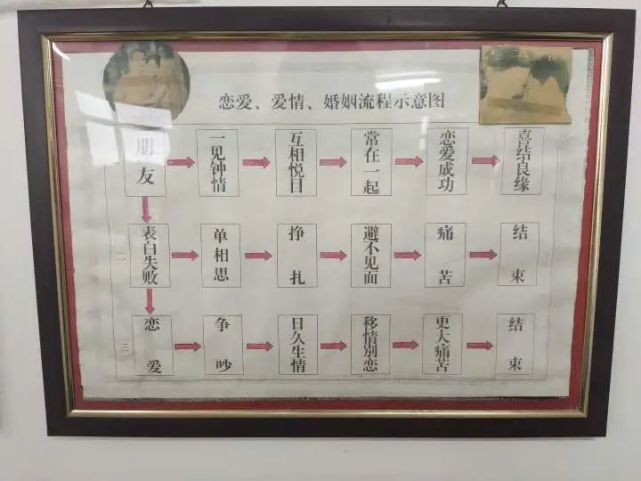 恋爱、爱情、婚姻流程示意图
朋友 一见钟情 互相悦目 常在一起 恋爱成功 喜结良缘
二 表白失败 单相思 挣扎 避不见面 痛苦 结束
三 恋爱 争吵 日久生情 移情别恋 更大痛苦 结束